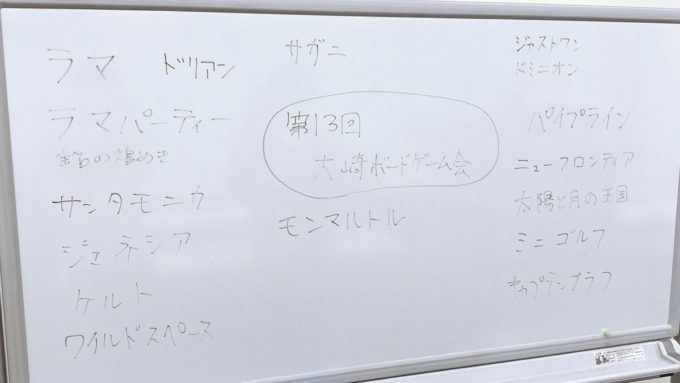 ラマ ドリアン
ラマパーティー
宝石の煌めき
サンタモニカ
ジェネシア
ケルト
ワイルドスペース
サガニ
第13回
大崎ボードゲーム会
モンマルトル
ジャストワン
ドミニオン
パイプライン
ニューフロンティア
太陽と月の王国
ミニゴルフ
キャプテンフラフ